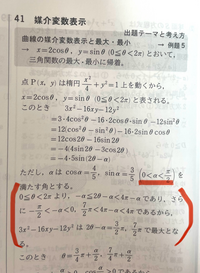 41 媒介変数表示
出題テーマと考え方
曲線の媒介変数表示と最大・最小 → 例題5
→ x=2cosθ, y=sinθ (0≦θ<2π) とおいて,
三角関数の最大・最小に帰着。
点P(x, y) は楕円 x²/4+y²=1 上を動くから,
x=2cosθ, y=sinθ (0≦θ<2π) と表される。
このとき 3x²-16xy-12y²
=3・4cos²θ-16・2cosθ・sinθ-12sin²θ
=12(cos²θ-sin²θ)-16・2sinθcosθ
=12cos2θ-16sin2θ
=-4(4sin2θ-3cos2θ)
=-4・5sin(2θ-α)
ただし, α は cosα=4/5, sinα=3/5 (0<α<π/2) を
満たす角とする。
0≦θ<2π より, -α≦2θ-α<4π-α であり, さら
に -π/2<-α<0, 7/2π<4π-α<4π であるから,
3x²-16xy-12y² は 2θ-α=3/2π, 7/2π で最大とな
る。
このとき θ=3/4π+α/2, 7/4π+α/2